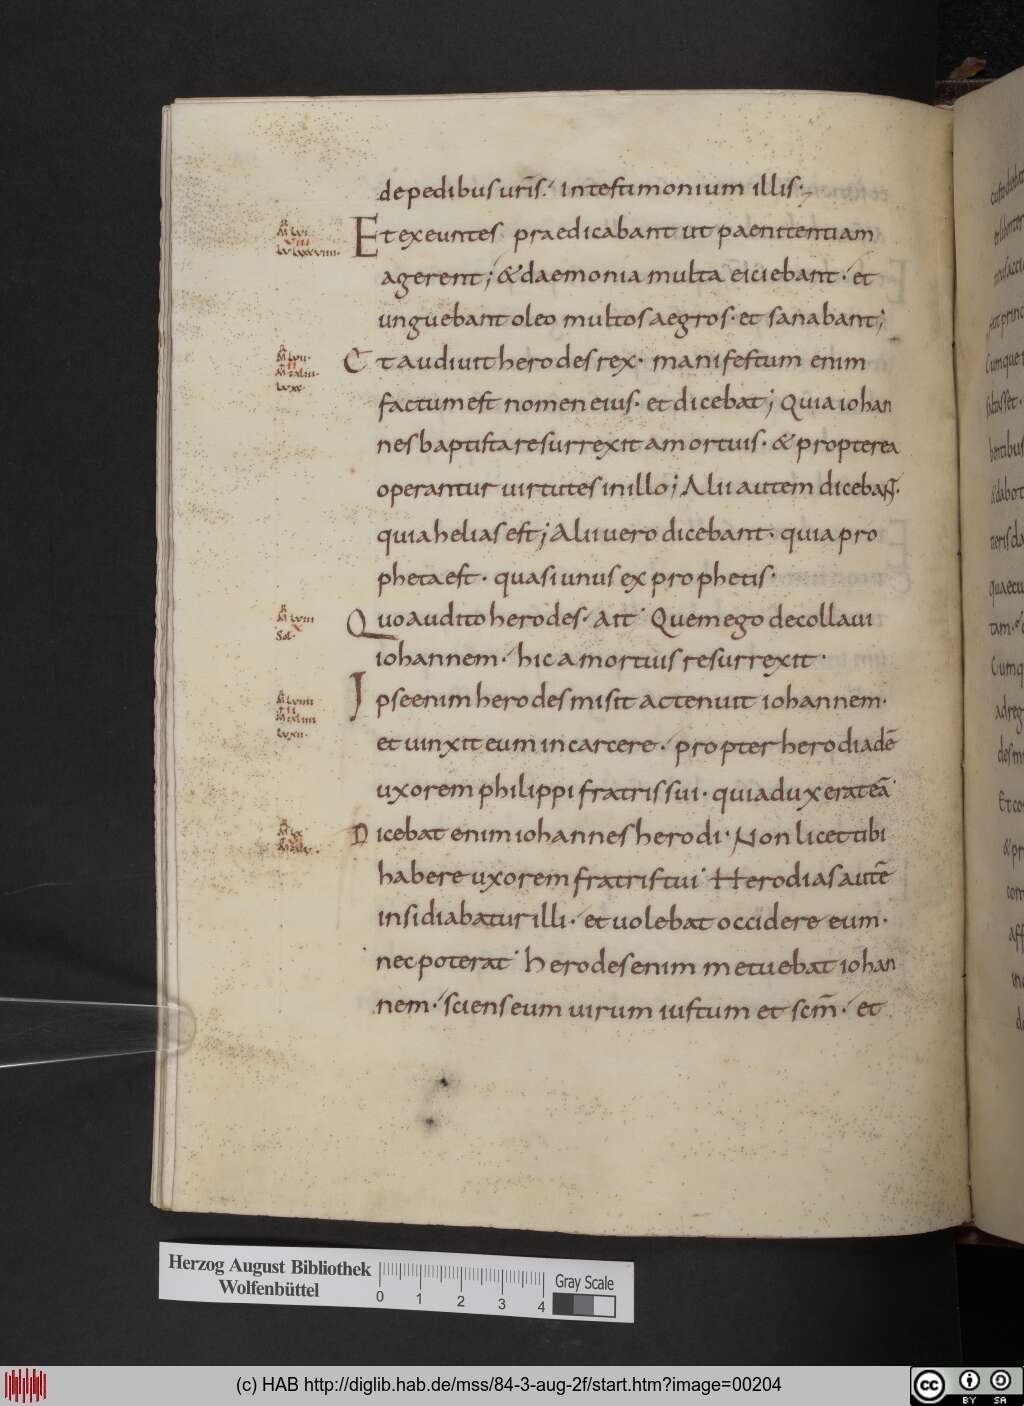 depedibus uris intestimonium illis
Et exeuntes praedicabant ut paenitentiam
agerent; & daemonia multa eiciebant. et
unguebant oleo multos aegros. et sanabant;
Et audiuit herodes rex. manifestum enim
factum est nomen eius. et dicebat; Quia iohan
nes baptista resurrexit a mortuis. & propterea
operantur uirtutes in illo; Alii autem dicebant.
quia helias est; Alii uero dicebant. quia pro
pheta est. quasi unus ex prophetis.
Quo audito herodes. ait. Quem ego decollaui
iohannem. hic a mortuis resurrexit.
Ipse enim herodes misit ac tenuit iohannem.
et uinxit eum in carcere. propter herodiadē
uxorem philippi fratris sui. quia duxerat eā.
Dicebat enim iohannes herodi. Non licet tibi
habere uxorem fratris tui. Herodias autē
insidiabatur illi. et uolebat occidere eum.
nec poterat. herodes enim metuebat iohan
nem. sciens eum uirum iustum et scm̄. et
Herzog August Bibliothek
Wolfenbüttel
0 1 2 3 4
Gray Scale
(c) HAB http://diglib.hab.de/mss/84-3-aug-2f/start.htm?image=00204
cc BY SA